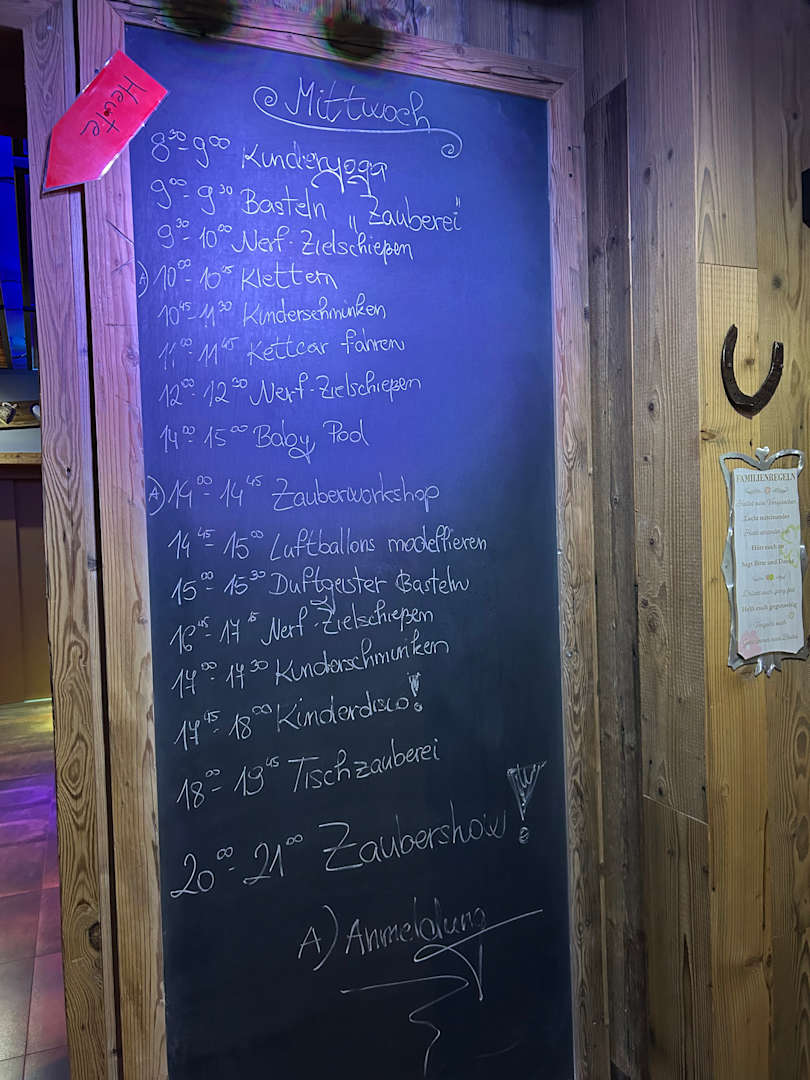 Heute
Mittwoch
8³⁰- 9⁰⁰ Kinderyoga
9⁰⁰- 9³⁰ Basteln „Zauberei"
9³⁰- 10⁰⁰ Nerf-Zielschießen
A) 10⁰⁰- 10⁴⁵ Klettern
10⁴⁵- 11³⁰ Kinderschminken
11⁰⁰- 11⁴⁵ Kettcar fahren
12⁰⁰- 12³⁰ Nerf-Zielschießen
14⁰⁰- 15⁰⁰ Baby Pool
A) 14⁰⁰- 14⁴⁵ Zauberworkshop
14⁴⁵- 15⁰⁰ Luftballons modellieren
15⁰⁰- 15³⁰ Duftgeister Basteln
16⁴⁵- 17¹⁵ Nerf-Zielschießen
17⁰⁰- 17³⁰ Kinderschminken
17⁴⁵- 18⁰⁰ Kinderdisco!
18⁰⁰- 19⁴⁵ Tischzauberei
20⁰⁰- 21⁰⁰ Zaubershow!
A) Anmeldung
FAMILIENREGELN
Lacht miteinander
Hört euch zu
Sagt Bitte und Danke
Helft euch gegenseitig